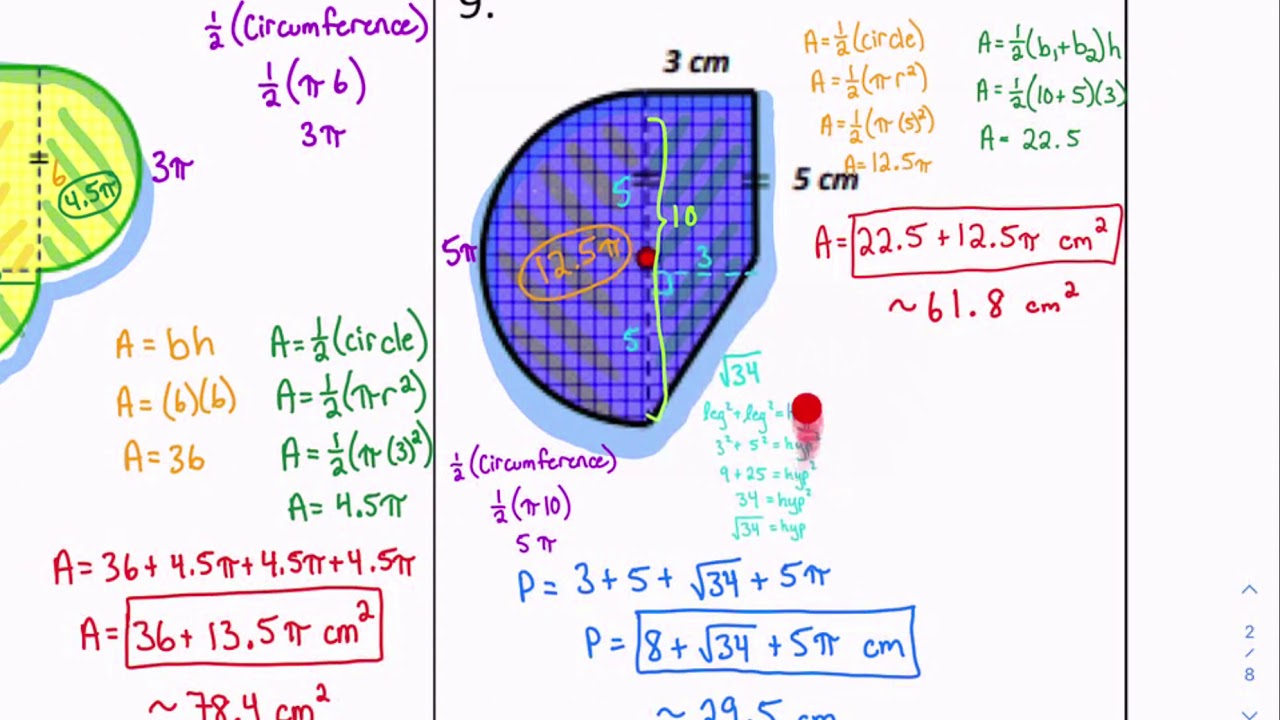 ½ (Circumference)
½ (π 6)
3π
3π
6
4.5π
A = bh
A = (6)(6)
A = 36
A = ½ (circle)
A = ½ (πr²)
A = ½ (π(3)²)
A = 4.5π
A = 36 + 4.5π + 4.5π + 4.5π
A = 36 + 13.5π cm²
~ 78.4 cm²
9.
3 cm
5 cm
5π
5
10
12.5π
3
5
A = ½ (circle)
A = ½ (πr²)
A = ½ (π(5)²)
A = 12.5π
A = ½ (b₁+b₂)h
A = ½ (10+5)(3)
A = 22.5
A = 22.5 + 12.5π cm²
~ 61.8 cm²
√34
leg² + leg² = h
3² + 5² = hyp²
9 + 25 = hyp²
34 = hyp²
√34 = hyp
½ (Circumference)
½ (π10)
5π
P = 3 + 5 + √34 + 5π
P = 8 + √34 + 5π cm
~ 29.5 cm
2
/
8